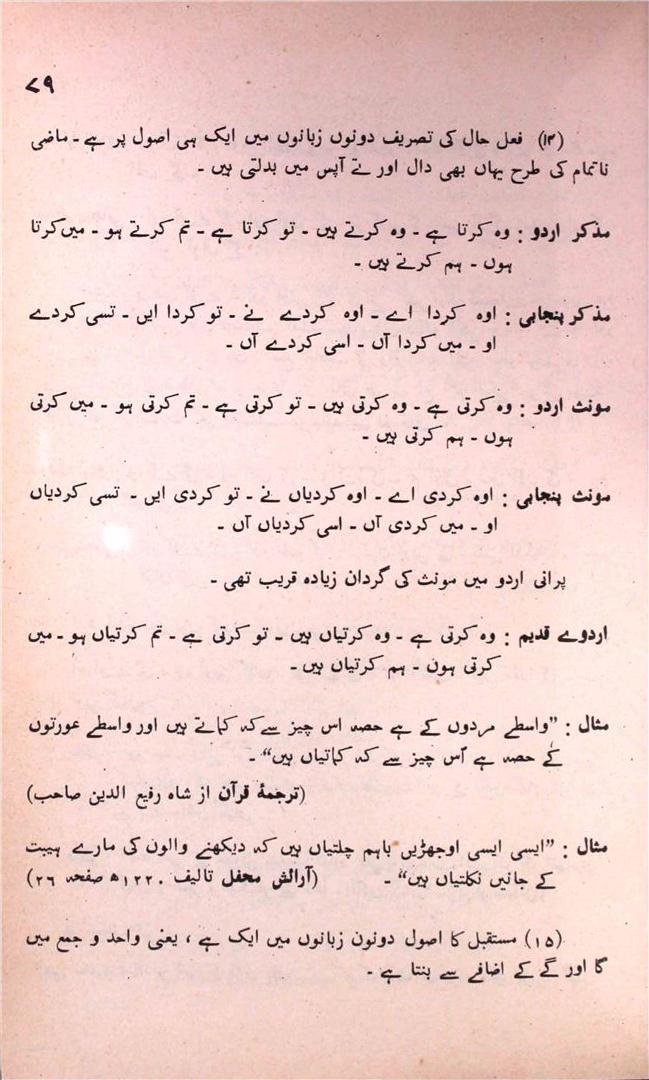 ۷۹
(۱۴) فعل حال کی تصریف دونوں زبانوں میں ایک ہی اصول پر ہے ۔ ماضی
ناتمام کی طرح یہاں بھی دال اور تے آپس میں بدلتی ہیں ۔
مذکر اردو : وہ کرتا ہے ۔ وہ کرتے ہیں ۔ تو کرتا ہے ۔ تم کرتے ہو ۔ میں کرتا
ہوں ۔ ہم کرتے ہیں ۔
مذکر پنجابی : اوہ کردا اے ۔ اوہ کردے نے ۔ تو کردا ایں ۔ تسی کردے
او ۔ میں کردا آں ۔ اسی کردے آں ۔
مونث اردو : وہ کرتی ہے ۔ وہ کرتی ہیں ۔ تو کرتی ہے ۔ تم کرتی ہو ۔ میں کرتی
ہوں ۔ ہم کرتی ہیں ۔
مونث پنجابی : اوہ کردی اے ۔ اوہ کردیاں نے ۔ تو کردی ایں ۔ تسی کردیاں
او ۔ میں کردی آں ۔ اسی کردیاں آں ۔
پرانی اردو میں مونث کی گردان زیادہ قریب تھی ۔
اردوے قدیم : وہ کرتی ہے ۔ وہ کرتیاں ہیں ۔ تو کرتی ہے ۔ تم کرتیاں ہو ۔ میں
کرتی ہون ۔ ہم کرتیاں ہیں ۔
مثال : ”واسطے مردوں کے ہے حصہ اس چیز سے کہ کماتے ہیں اور واسطے عورتوں
کے حصہ ہے اُس چیز سے کہ کماتیاں ہیں“ ۔
(ترجمۂ قرآن از شاہ رفیع الدین صاحب)
مثال : ”ایسی ایسی اوجھڑیں باہم چلتیاں ہیں کہ دیکھنے والون کی مارے ہیبت
کے جانیں نکلتیاں ہیں“ ۔ (آرائش محفل تالیف ۱۲۲۰ھ صفحہ ۲۶)
(۱۵) مستقبل کا اصول دونون زبانوں میں ایک ہے ، یعنی واحد و جمع میں
گا اور گے کے اضافے سے بنتا ہے ۔